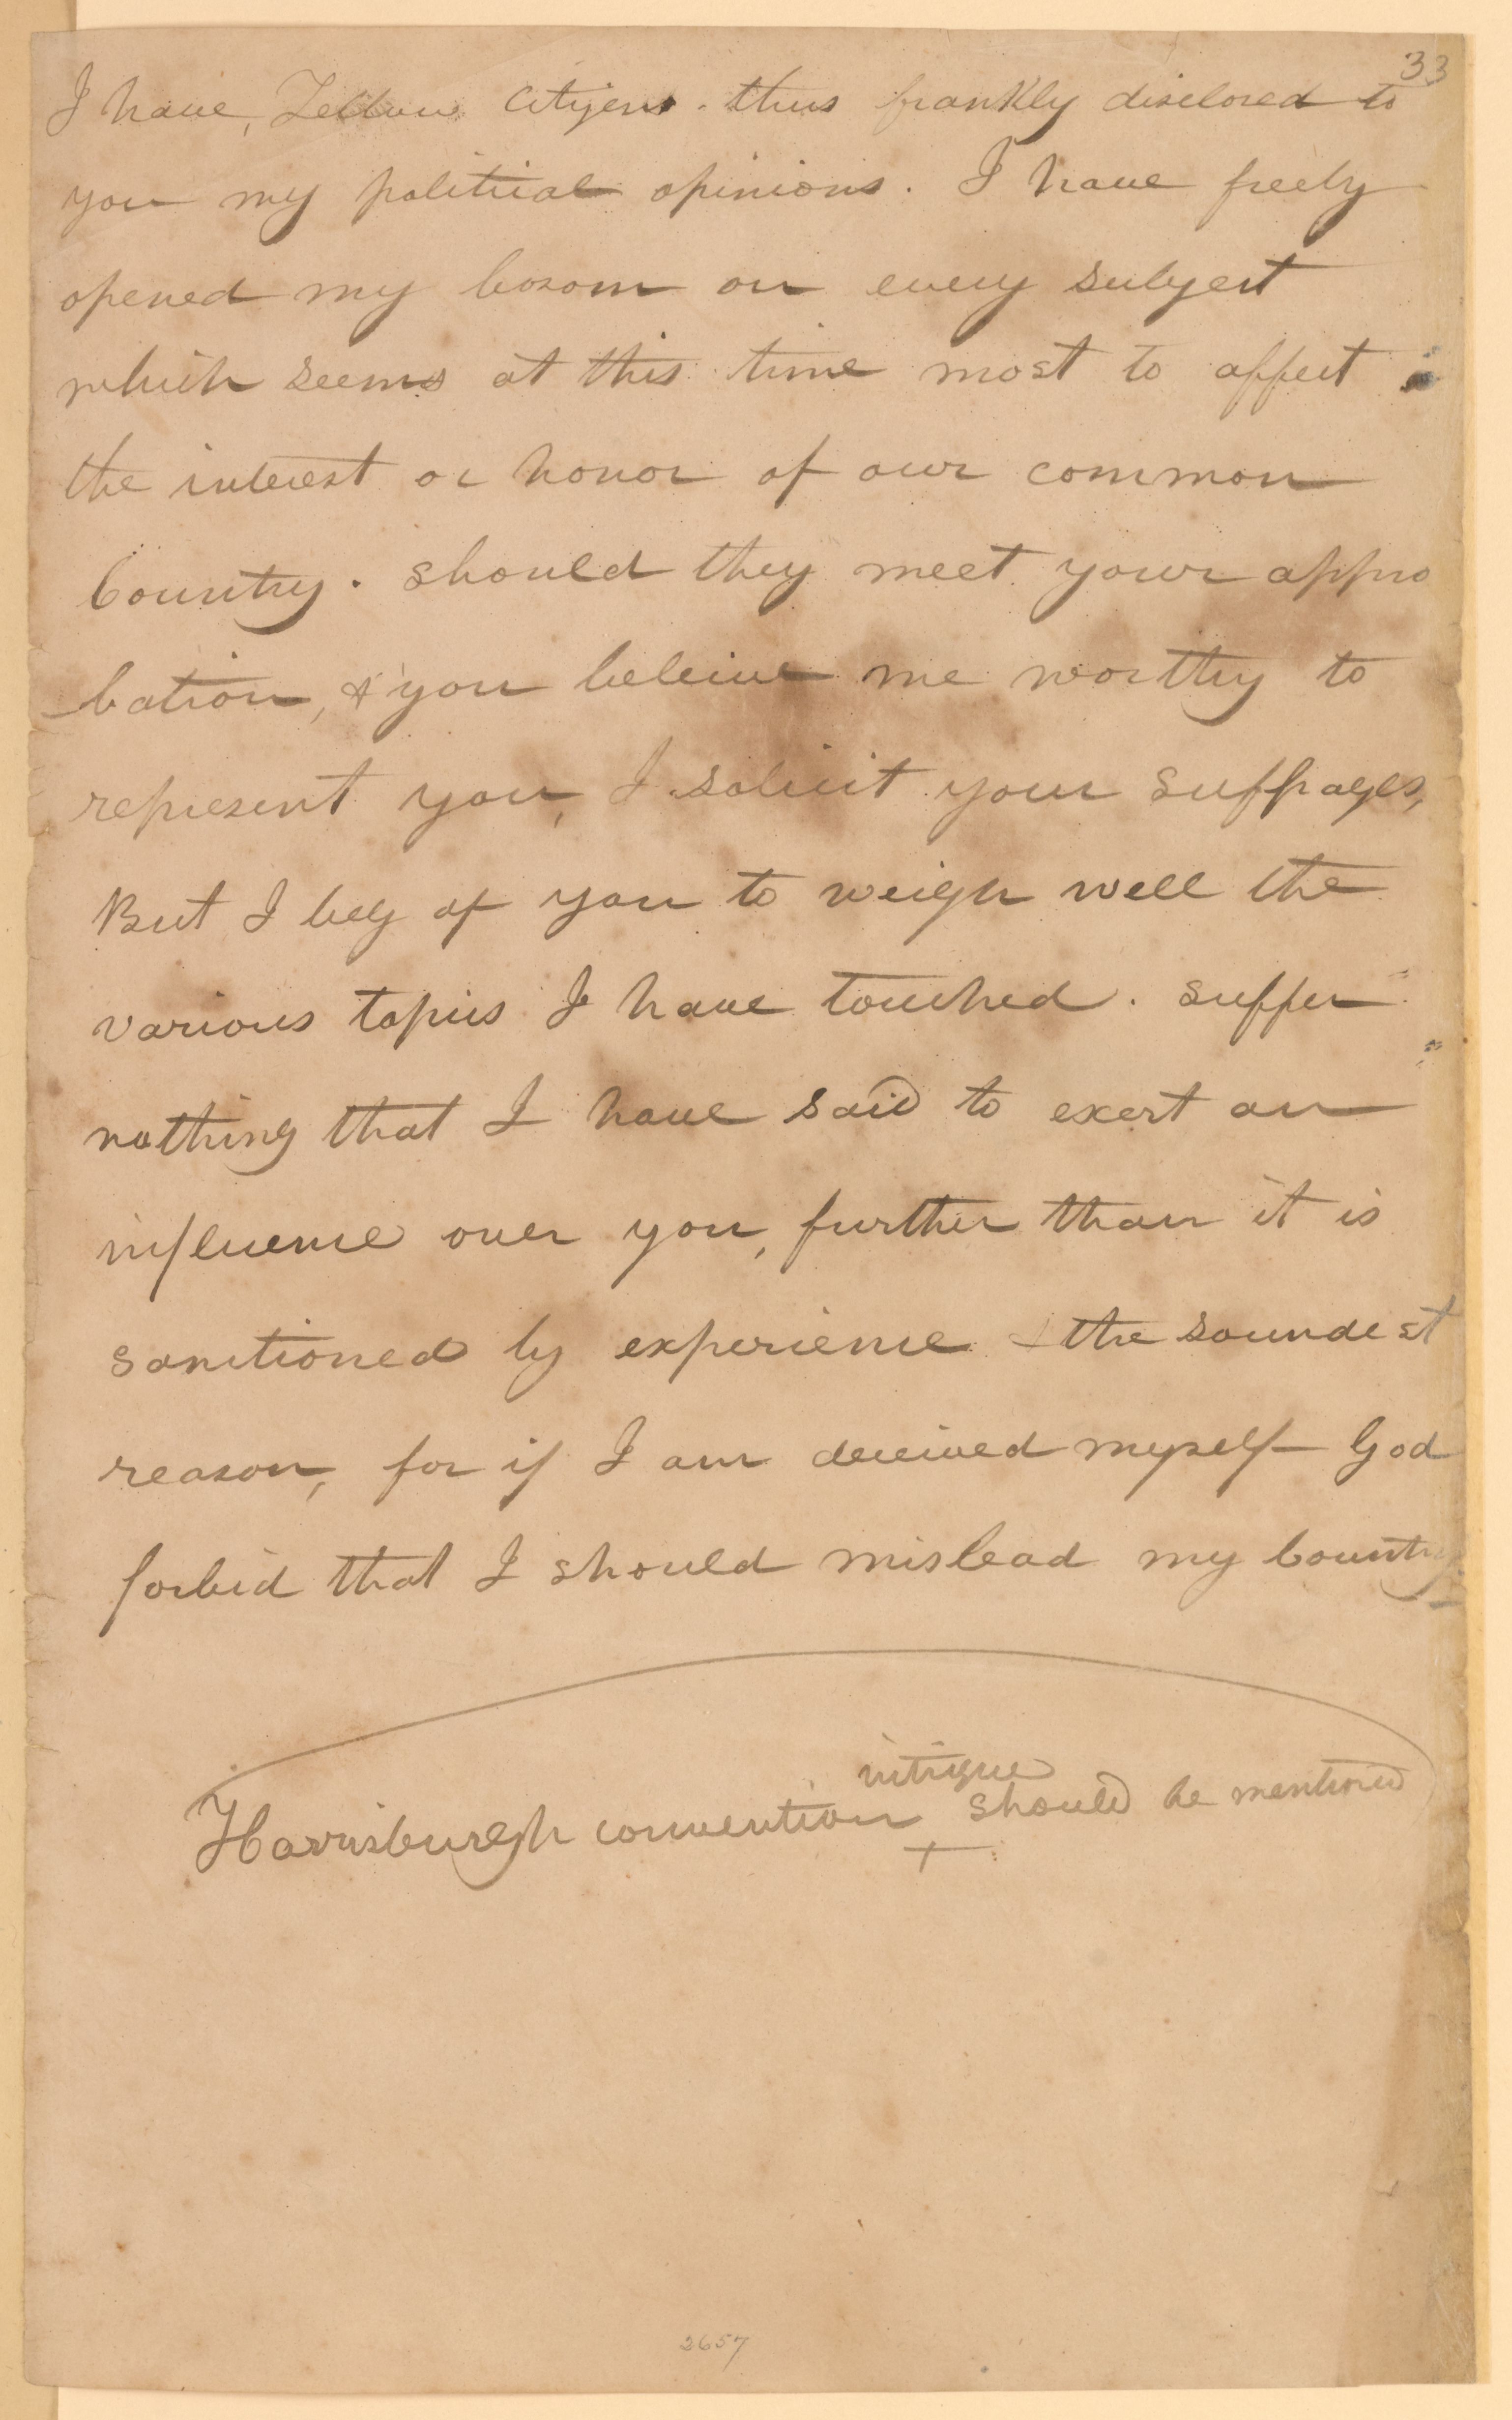 33
I have, Fellow Citizens. thus frankly disclosed to
you my political opinions. I have freely
opened my bosom on every subject
which seems at this time most to affect
the interest or honor of our common
Country. should they meet your appro
bation, & you beleive me worthy to
represent you, I solicit your suffrages,
But I beg of you to weigh well the
various topics I have touched. suffer
nothing that I have said to exert an
influence over you, further than it is
sanctioned by experience & the soundest
reason, for if I am deceived myself God
forbid that I should mislead my Country
intrigue
Harrisburgh convention should be mentioned
+
2657